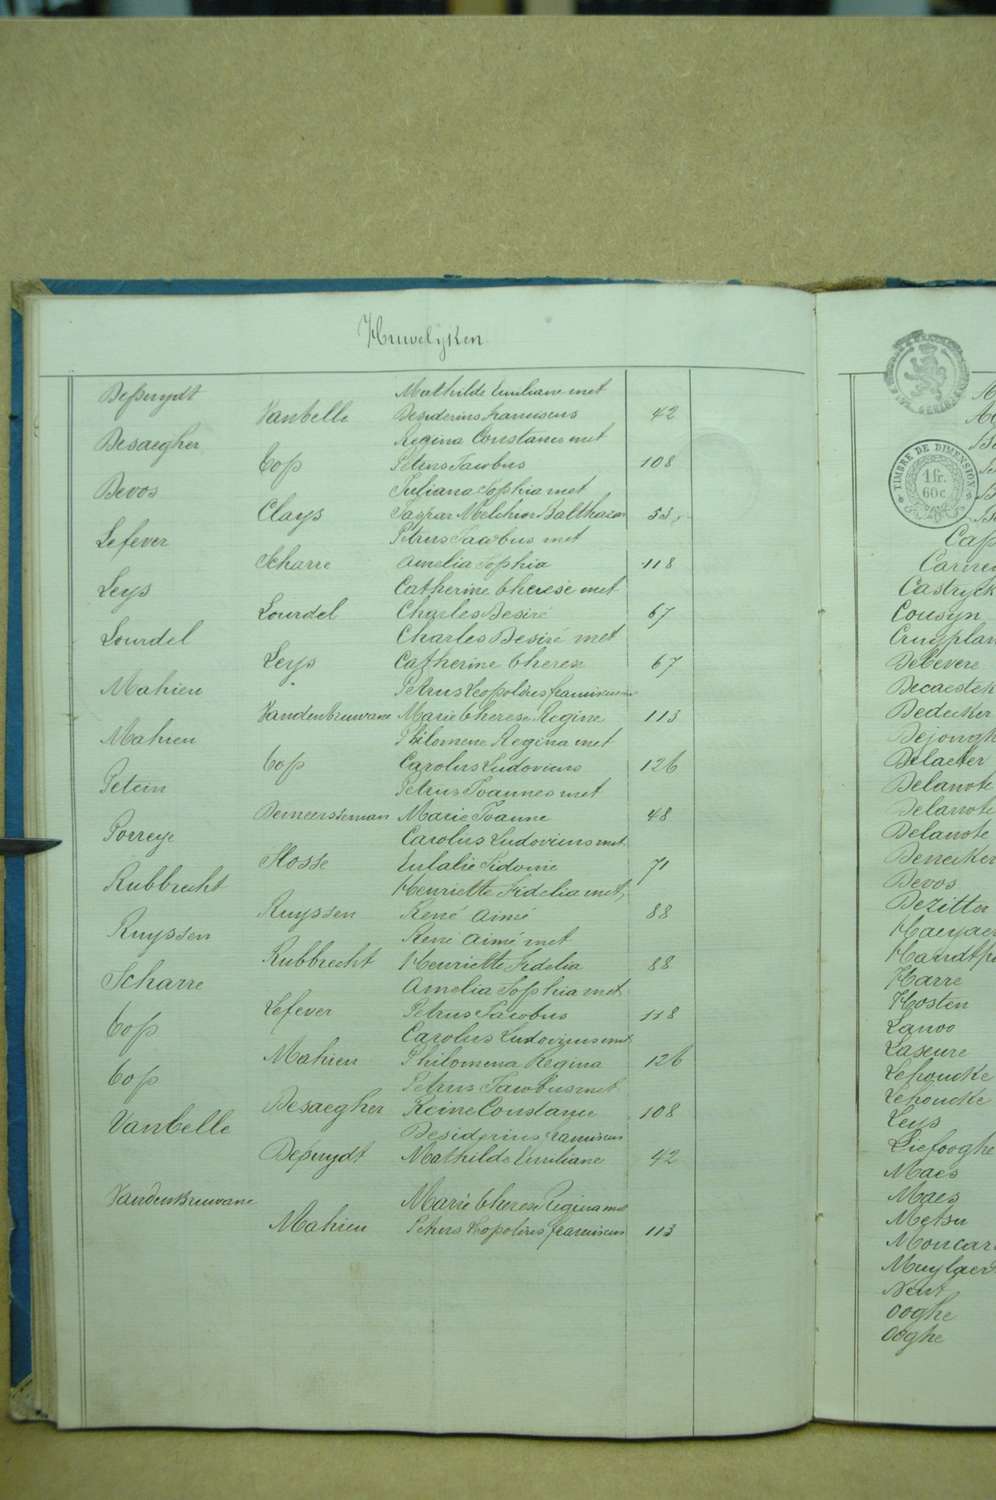 Huwelijken
Desnuydt Mathilde Emiliane met
Vanbelle Desiderius franciscus 42
Desaegher Regina Constance met
Top Petrus Jacobus 108
Devos Juliana Sophia met
Clays Jaspar Melchior Balthazar 55
Lefever Petrus Jacobus met
Scharre Amelia Sophia 118
Leys Catherine Therese met
Lourdel Charles Desiré 67
Lourdel Charles Desiré met
Leys Catherine Therese 67
Mahieu Petrus Leopoldus franciscus
Vandenbruwane Marie Therese Regine 113
Mahieu Philomene Regina met
Top Carolus Ludovicus 126
Petein Petrus Joannes met
Demeersseman Marie Joanne 48
Porreye Carolus Ludovicus met
Hosse Eulalie Sidonie 71
Rubbrecht Henriette Fidelia met
Ruyssen René Aimé 88
Ruyssen René Aimé met
Rubbrecht Henriette Fidelia 88
Scharre Amelia Sophia met
Lefever Petrus Jacobus 118
Top Carolus Ludovicus met
Mahieu Philomena Regina 126
Top Petrus Jacobus met
Desaegher Reine Constance 108
Vanbelle Desiderius franciscus
Desnuydt Mathilde Emiliane 42
Vandenbruwane Marie Therese Regina met
Mahieu Petrus Leopoldus franciscus 113
TIMBRE DE DIMENSION
1 fr.
60 c
Cap
Carre
Castryck
Cousyn
Cruyplan
Debevere
Decaestek
Dedecker
Dejongh
Delaeter
Delanote
Delanote
Delanote
Denecker
Devos
Dezitter
Haeyae
Handtpo
Harre
Hosten
Lanoo
Laseure
Lehoucke
Lehoucke
Leys
Liefooghe
Maes
Maes
Metsu
Moncar
Muylaer
Neut
Ooghe
Ooghe